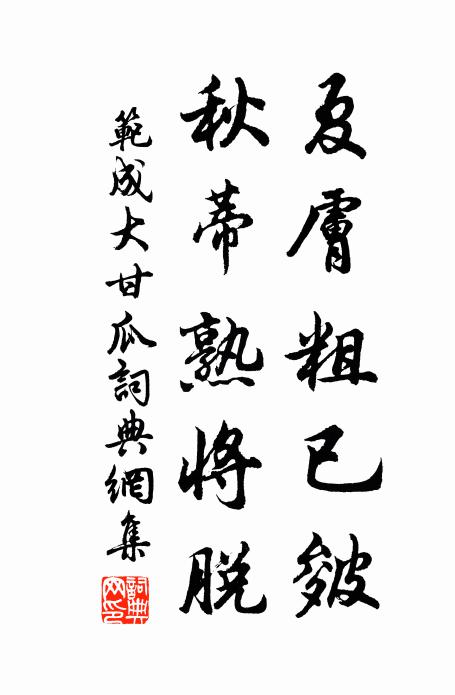 夏膚粗已皴
秋蒂熟將脫
範成大甘瓜詞典網集
詞典網印